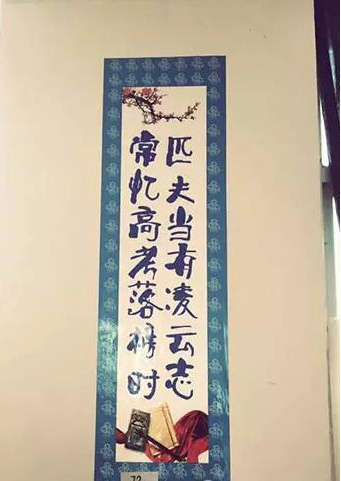 匹夫当有凌云志
常忆高考落榜时